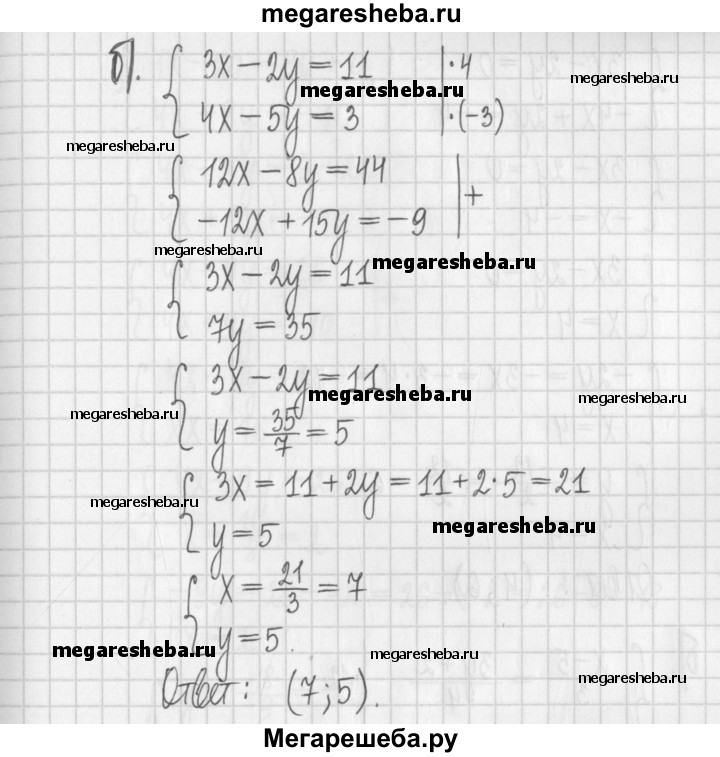 megaresheba.ru
б). { 3x − 2y = 11 | · 4
megaresheba.ru
megaresheba.ru
4x − 5y = 3 | · (−3)
megaresheba.ru
{ 12x − 8y = 44 | +
−12x + 15y = −9
megaresheba.ru
megaresheba.ru
{ 3x − 2y = 11
7y = 35
{ 3x − 2y = 11
megaresheba.ru
megaresheba.ru
megaresheba.ru
y = 35/7 = 5
{ 3x = 11 + 2y = 11 + 2 · 5 = 21
megaresheba.ru
megaresheba.ru
y = 5
{ x = 21/3 = 7
y = 5.
megaresheba.ru
megaresheba.ru
megaresheba.ru
Ответ: (7; 5).
Мегарешеба.ру